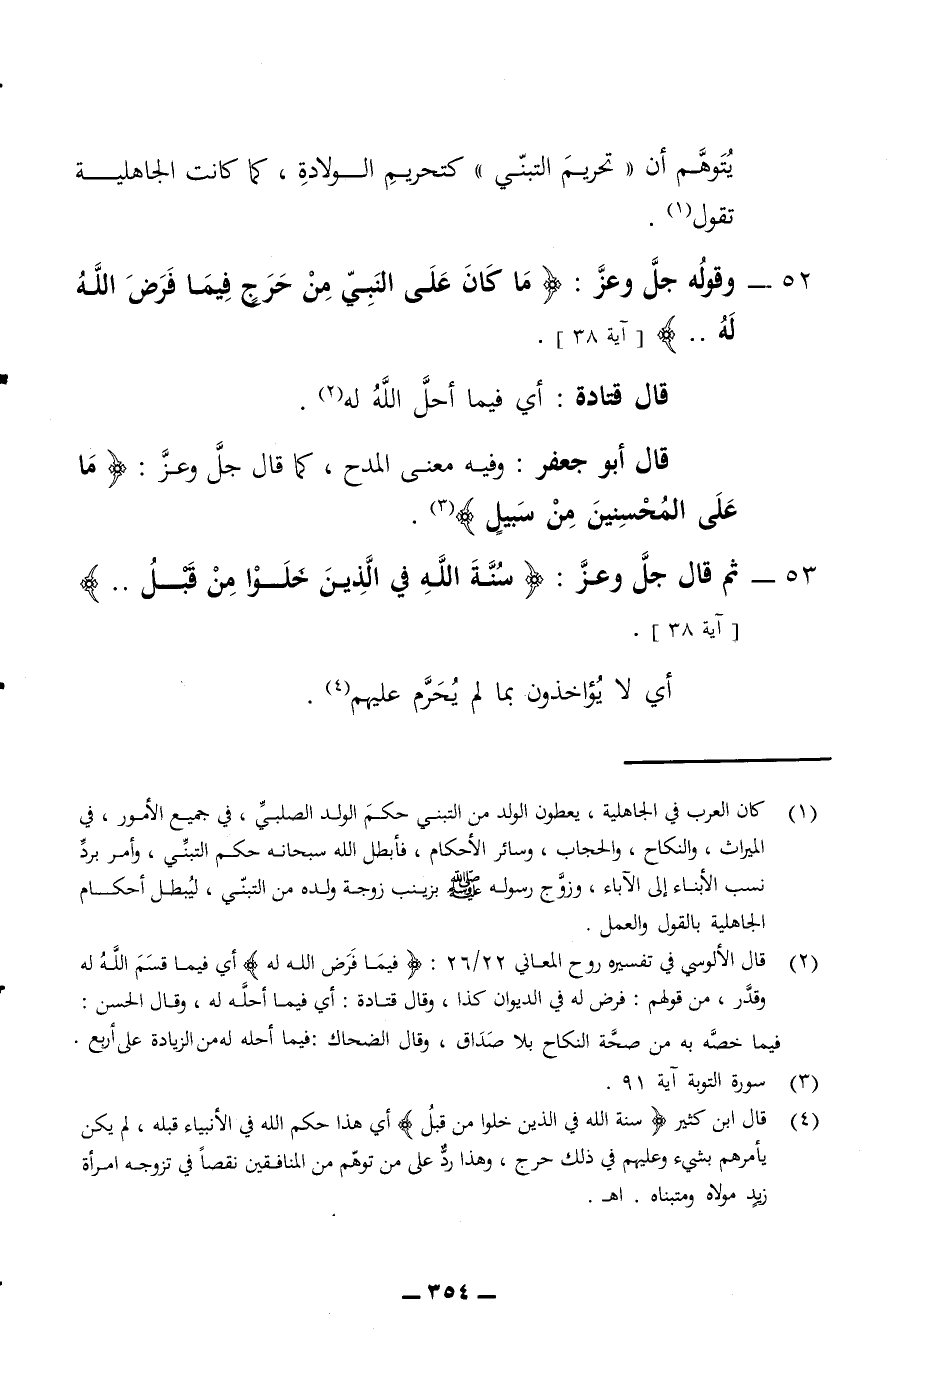 يُتَوهَّم أن « تحريمَ التبنّي » كتحريمِ الولادةِ ، كما كانت الجاهلية
تقول(١) .
٥٢ ــ وقولُه جلَّ وعزَّ : ﴿ مَا كَانَ عَلَى النَبِيّ مِنْ حَرَجٍ فِيمَا فَرَضَ اللَّهُ
لَهُ .. ﴾ [ آية ٣٨ ] .
قال قتادة : أي فيما أحلَّ اللَّهُ له(٢) .
قال أبو جعفر : وفيه معنى المدح ، كما قال جلَّ وعزَّ : ﴿ مَا
عَلَى المُحْسِنِينَ مِنْ سَبِيلٍ ﴾(٣) .
٥٣ ــ ثم قال جلَّ وعزَّ : ﴿ سُنَّةَ اللَّهِ فِي الَّذِينَ خَلَوْا مِنْ قَبْلُ .. ﴾
[ آية ٣٨ ] .
أي لا يُؤاخذون بما لم يُحَرَّم عليهم(٤) .
(١) كان العرب في الجاهلية ، يعطون الولد من التبني حكمَ الولد الصلبيِّ ، في جميع الأمور ، في
الميراث ، والنكاح ، والحجاب ، وسائر الأحكام ، فأبطل الله سبحانه حكم التبنِّي ، وأمر بردِّ
نسب الأبناء إلى الآباء ، وزوَّج رسوله ﷺ بزينب زوجة ولده من التبنّي ، ليُبطل أحكام
الجاهلية بالقول والعمل .
(٢) قال الألوسي في تفسيره روح المعاني ٢٦/٢٢ : ﴿ فيمَا فَرَض الله له ﴾ أي فيما قسَمَ اللَّهُ له
وقدَّر ، من قولهم : فرض له في الديوان كذا ، وقال قتادة : أي فيما أحلَّه له ، وقال الحسن :
فيما خصَّه به من صحَّة النكاح بلا صَدَاق ، وقال الضحاك :فيما أحله له من الزيادة على أربع .
(٣) سورة التوبة آية ٩١ .
(٤) قال ابن كثير ﴿ سنة الله في الذين خلوا من قبلُ ﴾ أي هذا حكم الله في الأنبياء قبله ، لم يكن
يأمرهم بشيء وعليهم في ذلك حرج ، وهذا ردٌّ على من توهّم من المنافقين نقصاً في تزوجه امرأة
زيدٍ مولاه ومتبناه . اهـ .
ــ ٣٥٤ ــ